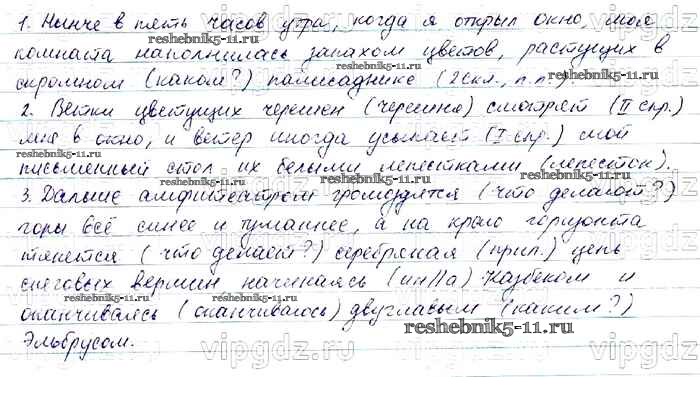 1. Нынче в пять часов утра, когда я открыл окно, моя
комната наполнилась запахом цветов, растущих в
скромном (каком?) палисаднике (2скл., п.п.)
2. Ветки цветущих черешен (черешня) смотрят (II спр.)
мне в окно, и ветер иногда усыпает (I спр.) мой
письменный стол их белыми лепестками (лепесток).
3. Дальше амфитеатром громоздятся (что делают?)
горы всё синее и туманнее, а на краю горизонта
тянется (что делает?) серебряная (прил.) цепь
снеговых вершин начинаясь (ин//а) Казбеком и
оканчиваясь (оканчивалось) двуглавым (каким?)
Эльбрусом.
reshebnik5-11.ru
reshebnik5-11.ru
reshebnik5-11.ru
reshebnik5-11.ru
reshebnik5-11.ru
reshebnik5-11.ru
reshebnik5-11.ru
reshebnik5-11.ru
reshebnik5-11.ru
vipgdz.ru
vipgdz.ru